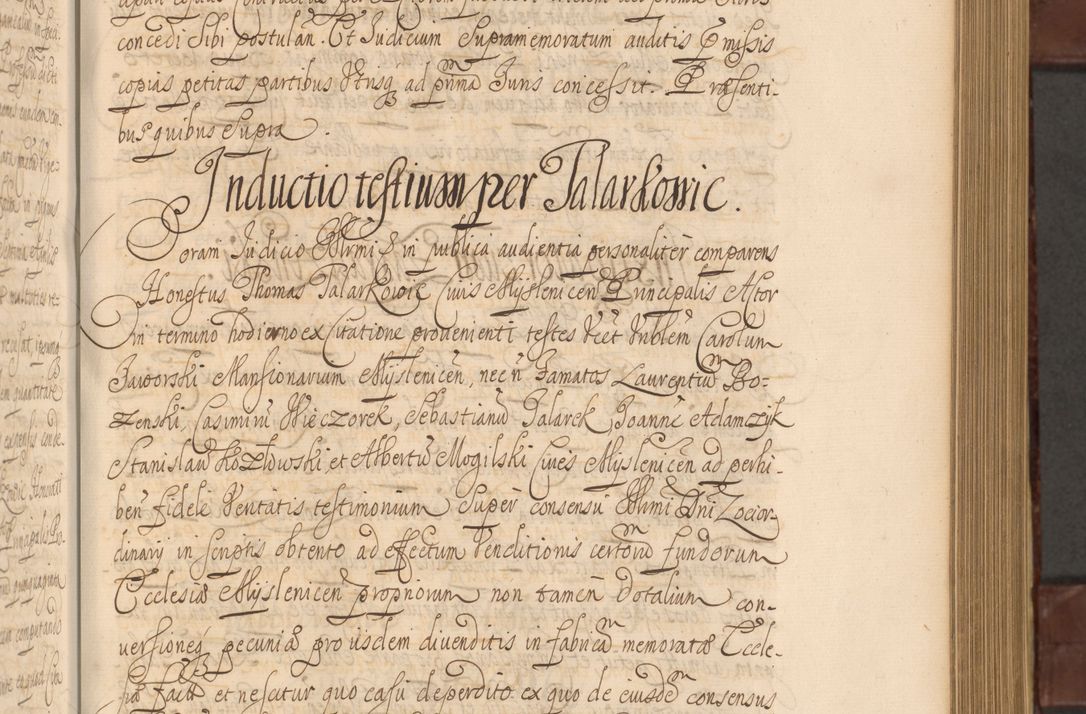 concedi sibi postulan. Et Judicium Supramemoratum auditis Pmissis
copias petitas partibus Utrisq ad prima Juris concessit. Præsenti-
bus quibus Supra.
Inductio testium per Talarkowic.
Coram Judicio Illrmi & in publica audientia personaliter comparens
Honestus Thomas Talarkowic Civis Myslenicen Principalis Actor
in termino hodierno ex Citatione provenienti testes Vcet Vnblem Carolum
Jaworski Mansionarium Myslenicen, necn Famatos Laurentiu Bo-
zenski, Casimiru Wieczorek, Sebastianu Talarek, Joanne Adamczyk
Stanislau Kozłowski et Albertu Mogilski Cives Myslenicen ad perhi-
ben fidele Veritatis testimonium Super consensu Illrmi Dni Loci or-
dinarij in scriptis obtento ad effectum Venditionis certoru fundorum
Ecclesiæ Myslenicen propriorum non tamen dotalium con-
versiones pecuniæ pro iisdem divenditis in fabrica memoratæ Eccle-
siæ factæ et nescitur quo casu deperdito ex quo de eiusde consensus